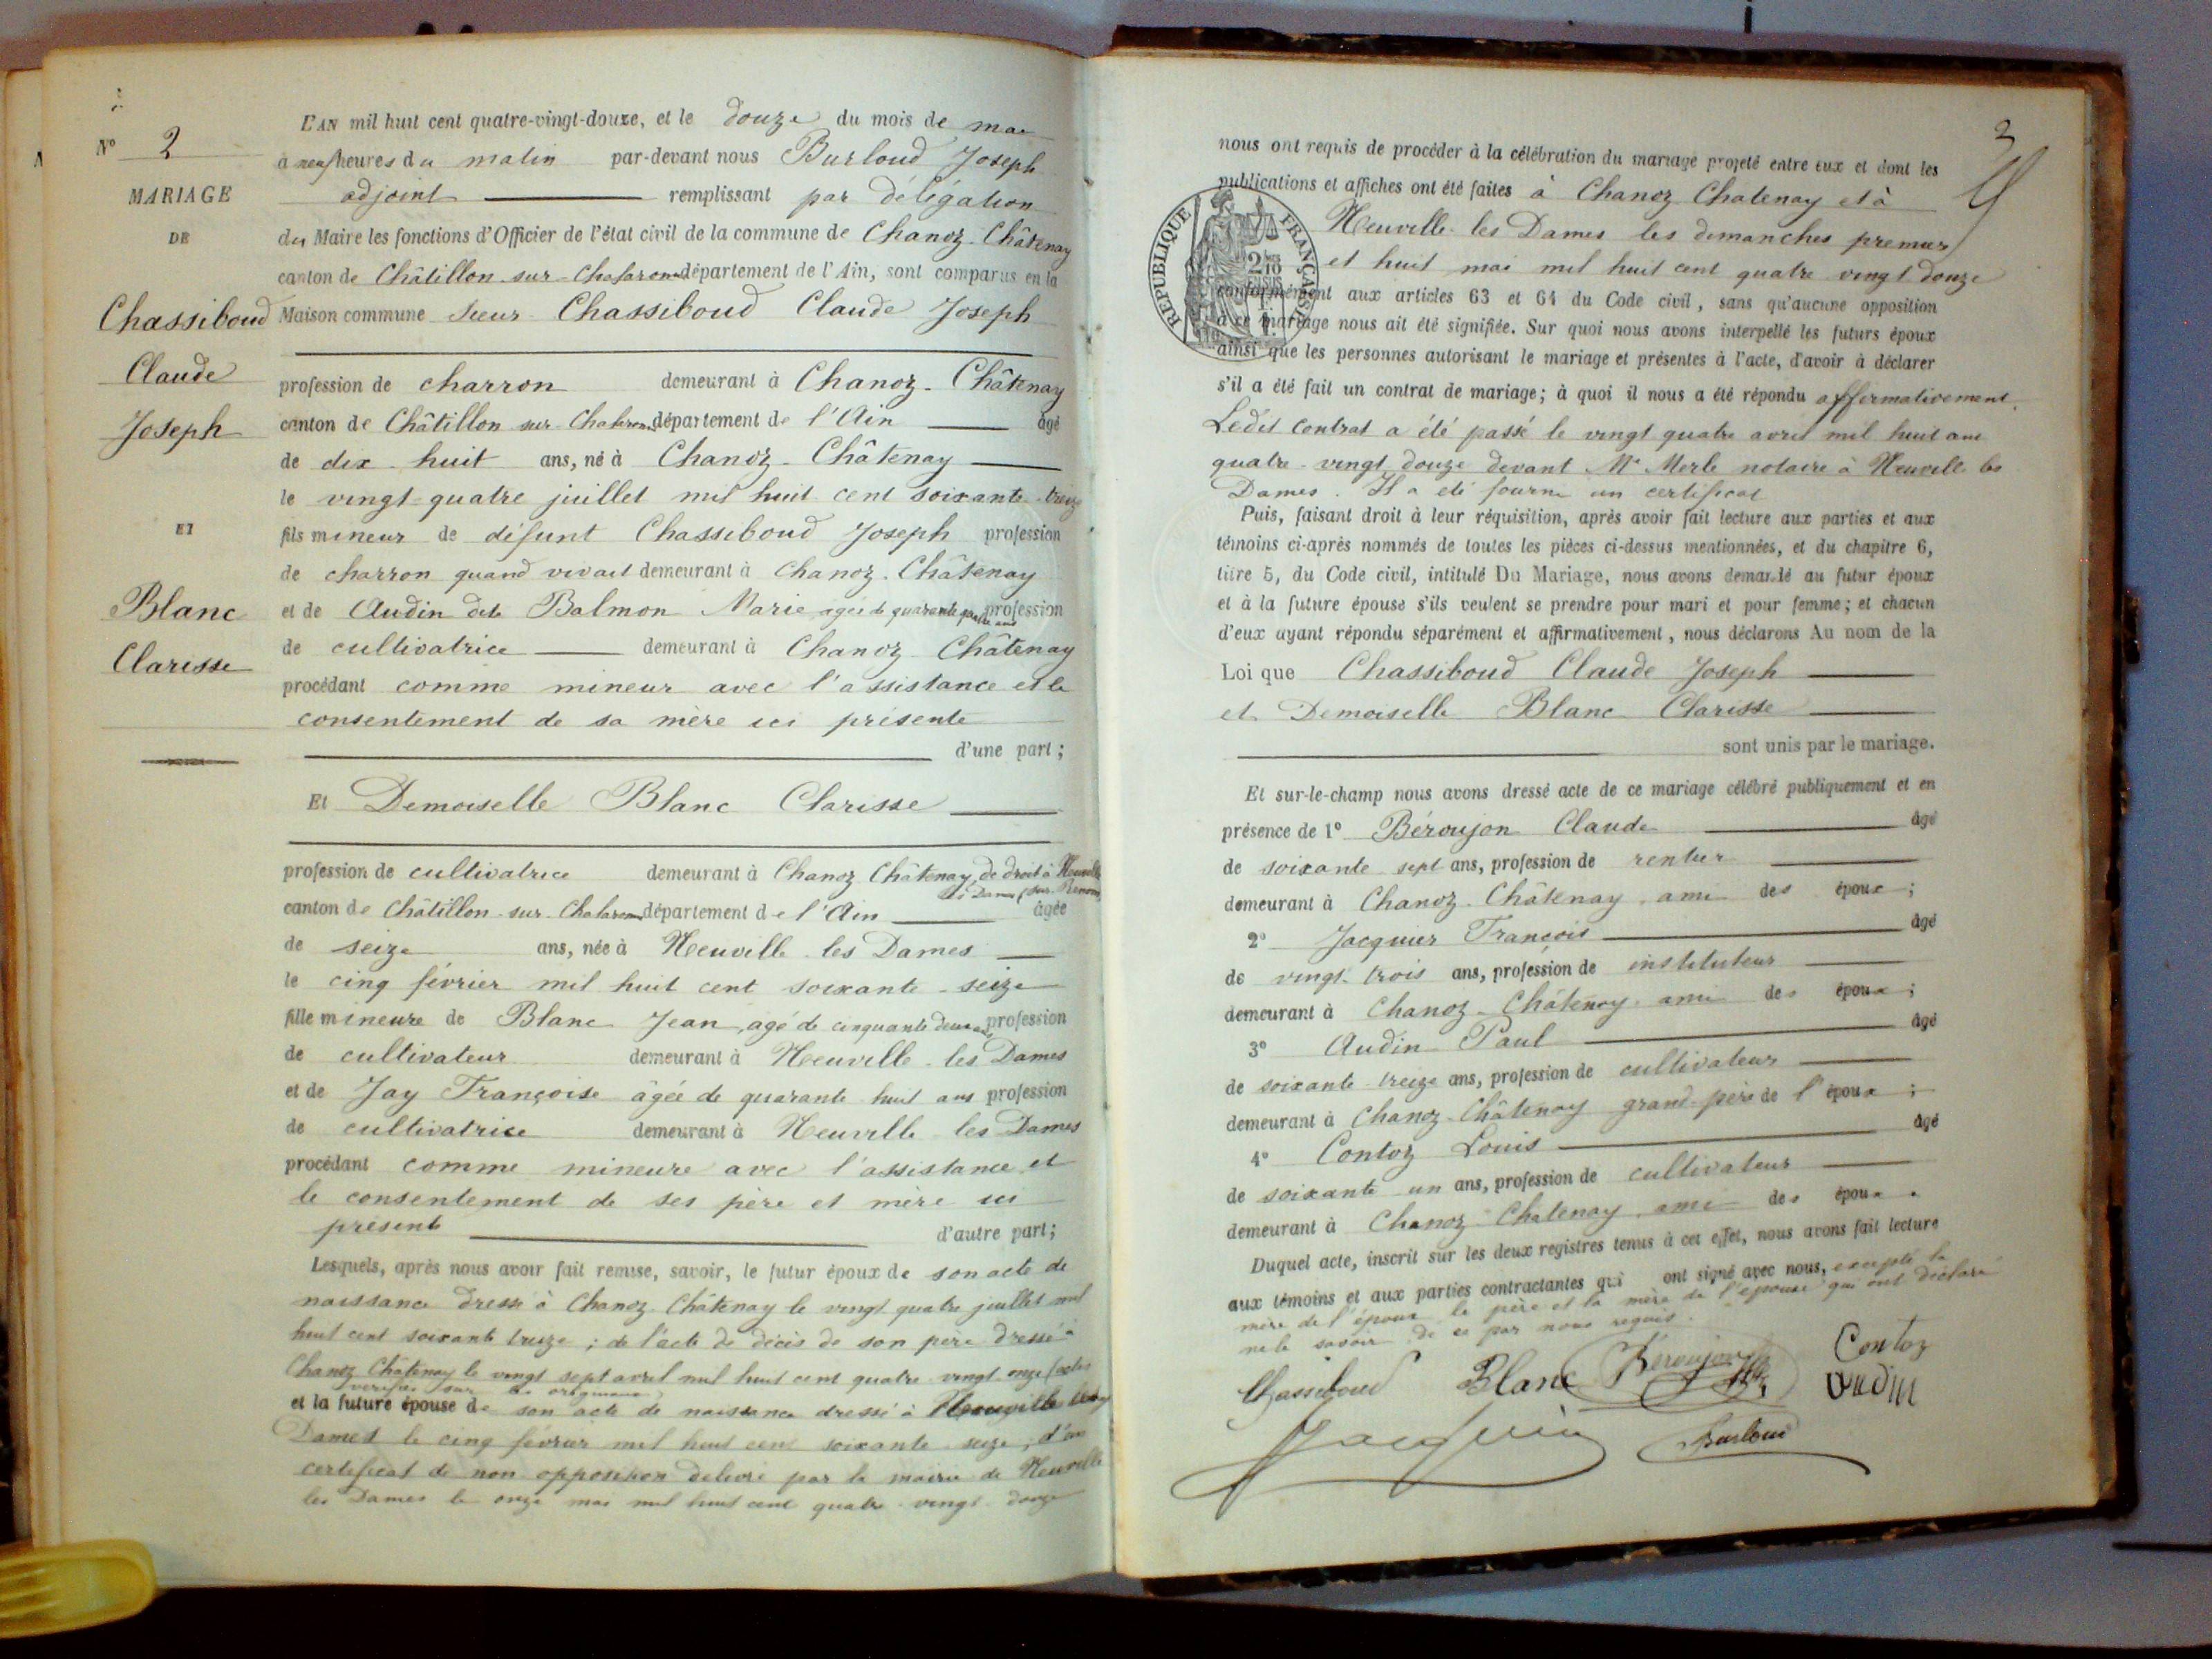 N° 2
MARIAGE
DE
Chassiboud
Claude
Joseph
ET
Blanc
Clarisse
L'AN mil huit cent quatre-vingt-douze, et le douze du mois de mai
à neuf heures du matin par-devant nous Burloud Joseph
adjoint remplissant par délégation
du Maire les fonctions d'Officier de l'état civil de la commune de Chanoz-Châtenay
canton de Châtillon-sur-Chalaronne département de l'Ain, sont comparus en la
Maison commune Sieur Chassiboud Claude Joseph
profession de charron demeurant à Chanoz-Châtenay
canton de Châtillon sur Chalaronne département de l'Ain âgé
de dix-huit ans, né à Chanoz-Châtenay
le vingt-quatre juillet mil huit cent soixante-treize
fils mineur de défunt Chassiboud Joseph profession
de charron quand vivait demeurant à Chanoz-Châtenay
et de Audin dite Balmon Marie, agée de quarante quatre ans profession
de cultivatrice demeurant à Chanoz Châtenay
procédant comme mineur avec l'assistance et le
consentement de sa mère ici présente
d'une part;
Et Demoiselle Blanc Clarisse
profession de cultivatrice demeurant à Chanoz Châtenay, de droit à Neuville
les Dames sur Renom
canton de Châtillon-sur-Chalaronne département de l'Ain âgée
de seize ans, née à Neuville les Dames
le cinq février mil huit cent soixante-seize
fille mineure de Blanc Jean, agé de cinquante deux ans profession
de cultivateur demeurant à Neuville-les Dames
et de Jay Françoise âgée de quarante huit ans profession
de cultivatrice demeurant à Neuville-les Dames
procédant comme mineure avec l'assistance et
le consentement de ses père et mère ici
présents d'autre part;
Lesquels, après nous avoir fait remise, savoir, le futur époux de son acte de
naissance dressé à Chanoz-Châtenay le vingt quatre juillet mil
huit cent soixante treize; de l'acte de décès de son père dressé à
Chanoz Châtenay le vingt sept avril mil huit cent quatre-vingt-onze (actes
vérifiés sur les originaux)
et la future épouse de son acte de naissance dressé à Neuville les
Dames le cinq février mil huit cent soixante-seize; d'un
certificat de non opposition délivré par la mairie de Neuville
les Dames le onze mai mil huit cent quatre-vingt-douze
3
nous ont requis de procéder à la célébration du mariage projeté entre eux et dont les
publications et affiches ont été faites à Chanoz Chatenay et à
Neuville-les Dames les dimanches premier
et huit mai mil huit cent quatre vingt douze
conformément aux articles 63 et 64 du Code civil, sans qu'aucune opposition
à ce mariage nous ait été signifiée. Sur quoi nous avons interpellé les futurs époux
ainsi que les personnes autorisant le mariage et présentes à l'acte, d'avoir à déclarer
s'il a été fait un contrat de mariage; à quoi il nous a été répondu affirmativement.
Ledit contrat a été passé le vingt quatre avril mil huit cent
quatre-vingt douze devant Me Merle notaire à Neuville les
Dames. Il a été fourni un certificat
RÉPUBLIQUE FRANÇAISE
Puis, faisant droit à leur réquisition, après avoir fait lecture aux parties et aux
témoins ci-après nommés de toutes les pièces ci-dessus mentionnées, et du chapitre 6,
titre 5, du Code civil, intitulé Du Mariage, nous avons demandé au futur époux
et à la future épouse s'ils veulent se prendre pour mari et pour femme; et chacun
d'eux ayant répondu séparément et affirmativement, nous déclarons Au nom de la
Loi que Chassiboud Claude Joseph
et Demoiselle Blanc Clarisse
sont unis par le mariage.
Et sur-le-champ nous avons dressé acte de ce mariage célébré publiquement et en
présence de 1° Béroujon Claude âgé
de soixante sept ans, profession de rentier
demeurant à Chanoz-Châtenay, ami des époux;
2° Jacquier François âgé
de vingt-trois ans, profession de instituteur
demeurant à Chanoz-Châtenay ami des époux;
3° Audin Paul âgé
de soixante-treize ans, profession de cultivateur
demeurant à Chanoz-Châtenay grand-père de l'époux;
4° Contoz Louis âgé
de soixante un ans, profession de cultivateur
demeurant à Chanoz-Chatenay, ami des époux.
Duquel acte, inscrit sur les deux registres tenus à cet effet, nous avons fait lecture
aux témoins et aux parties contractantes qui ont signé avec nous, excepté la
mère de l'époux le père et la mère de l'épouse qui ont déclaré
ne le savoir de ce par nous requis.
Chassiboud Blanc Béroujon Contoz
Audin
Jacquier Burloud